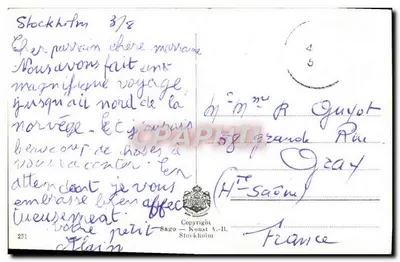 Stockholm 3/8
Cher parrain chère marraine
Nous avons fait un
magnifique voyage
jusqu'au nord de la
norvège. Et j'aurais
beaucoup de choses à
vous raconter. En
attendant, je vous
embrasse bien affec
tueusement.
votre petit
Alain
Mr Mme R Guyot
58 grande Rue
Gray
(Hte-Saône)
France
CPARAMA
Copyright
Sago - Konst A.-B.
Stockholm
231